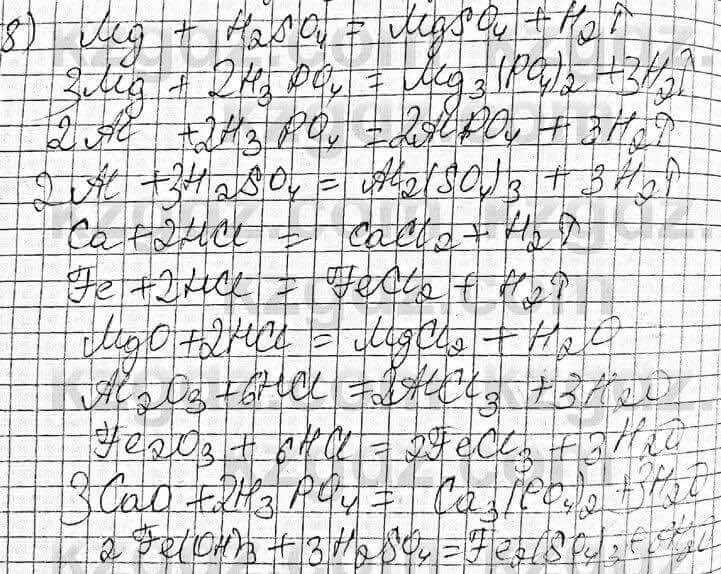 8) Mg + H₂SO₄ = MgSO₄ + H₂↑
3Mg + 2H₃PO₄ = Mg₃(PO₄)₂ + 3H₂↑
2Al + 2H₃PO₄ = 2AlPO₄ + 3H₂↑
2Al + 3H₂SO₄ = Al₂(SO₄)₃ + 3H₂↑
Ca + 2HCl = CaCl₂ + H₂↑
Fe + 2HCl = FeCl₂ + H₂↑
MgO + 2HCl = MgCl₂ + H₂O
Al₂O₃ + 6HCl = 2AlCl₃ + 3H₂O
Fe₂O₃ + 6HCl = 2FeCl₃ + 3H₂O
3CaO + 2H₃PO₄ = Ca₃(PO₄)₂ + 3H₂O
2Fe(OH)₃ + 3H₂SO₄ = Fe₂(SO₄)₃ +